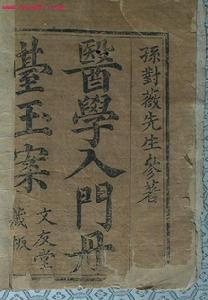 孫對薇先生參著
醫學入門丹
臺玉案
文友堂
藏版